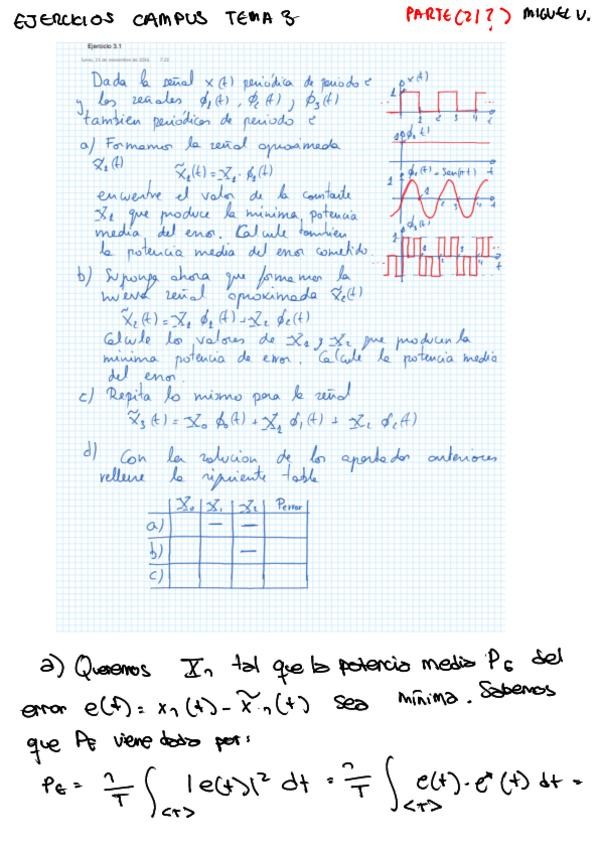 EJERCICIOS CAMPUS TEMA 3 PARTE (2/?) MIGUEL V.
Ejercicio 3.1
lunes, 23 de noviembre de 2015 7:22
Dada la señal x(t) periódica de periodo 2
y las señales ϕ₁(t), ϕ₂(t) y ϕ₃(t)
tambien periódicas de periodo 2
a) Formamos la señal aproximada
x̃₁(t) x̃₁(t) = X₁ · ϕ₁(t)
encuentre el valor de la constante
X₁ que produce la mínima potencia
media del error. Calcule tambien
la potencia media del error cometido.
b) Suponga ahora que formamos la
nueva señal aproximada x̃₂(t)
x̃₂(t) = X₁ ϕ₁(t) + X₂ ϕ₂(t)
Calcule los valores de X₁ y X₂ que producen la
mínima potencia de error. Calcule la potencia media
del error.
c) Repita lo mismo para la señal
x̃₃(t) = X₀ ϕ₀(t) + X₁ ϕ₁(t) + X₂ ϕ₂(t)
d) Con la solucion de los apartados anteriores
rellene la siguiente tabla
X₀ X₁ X₂ Perror
a) — —
b) —
c)
x(t)
1
1 2 3 4 t
t
ϕ₁(t) = Sen(πt)
1
a) Queremos X₁ tal que la potencia media Pε del
error e(t) = x₁(t) - x̃₁(t) sea mínima. Sabemos
que Pε viene dado por:
Pε = 1/T ∫<T> |e(t)|² dt = 1/T ∫<T> e(t) · e*(t) dt =